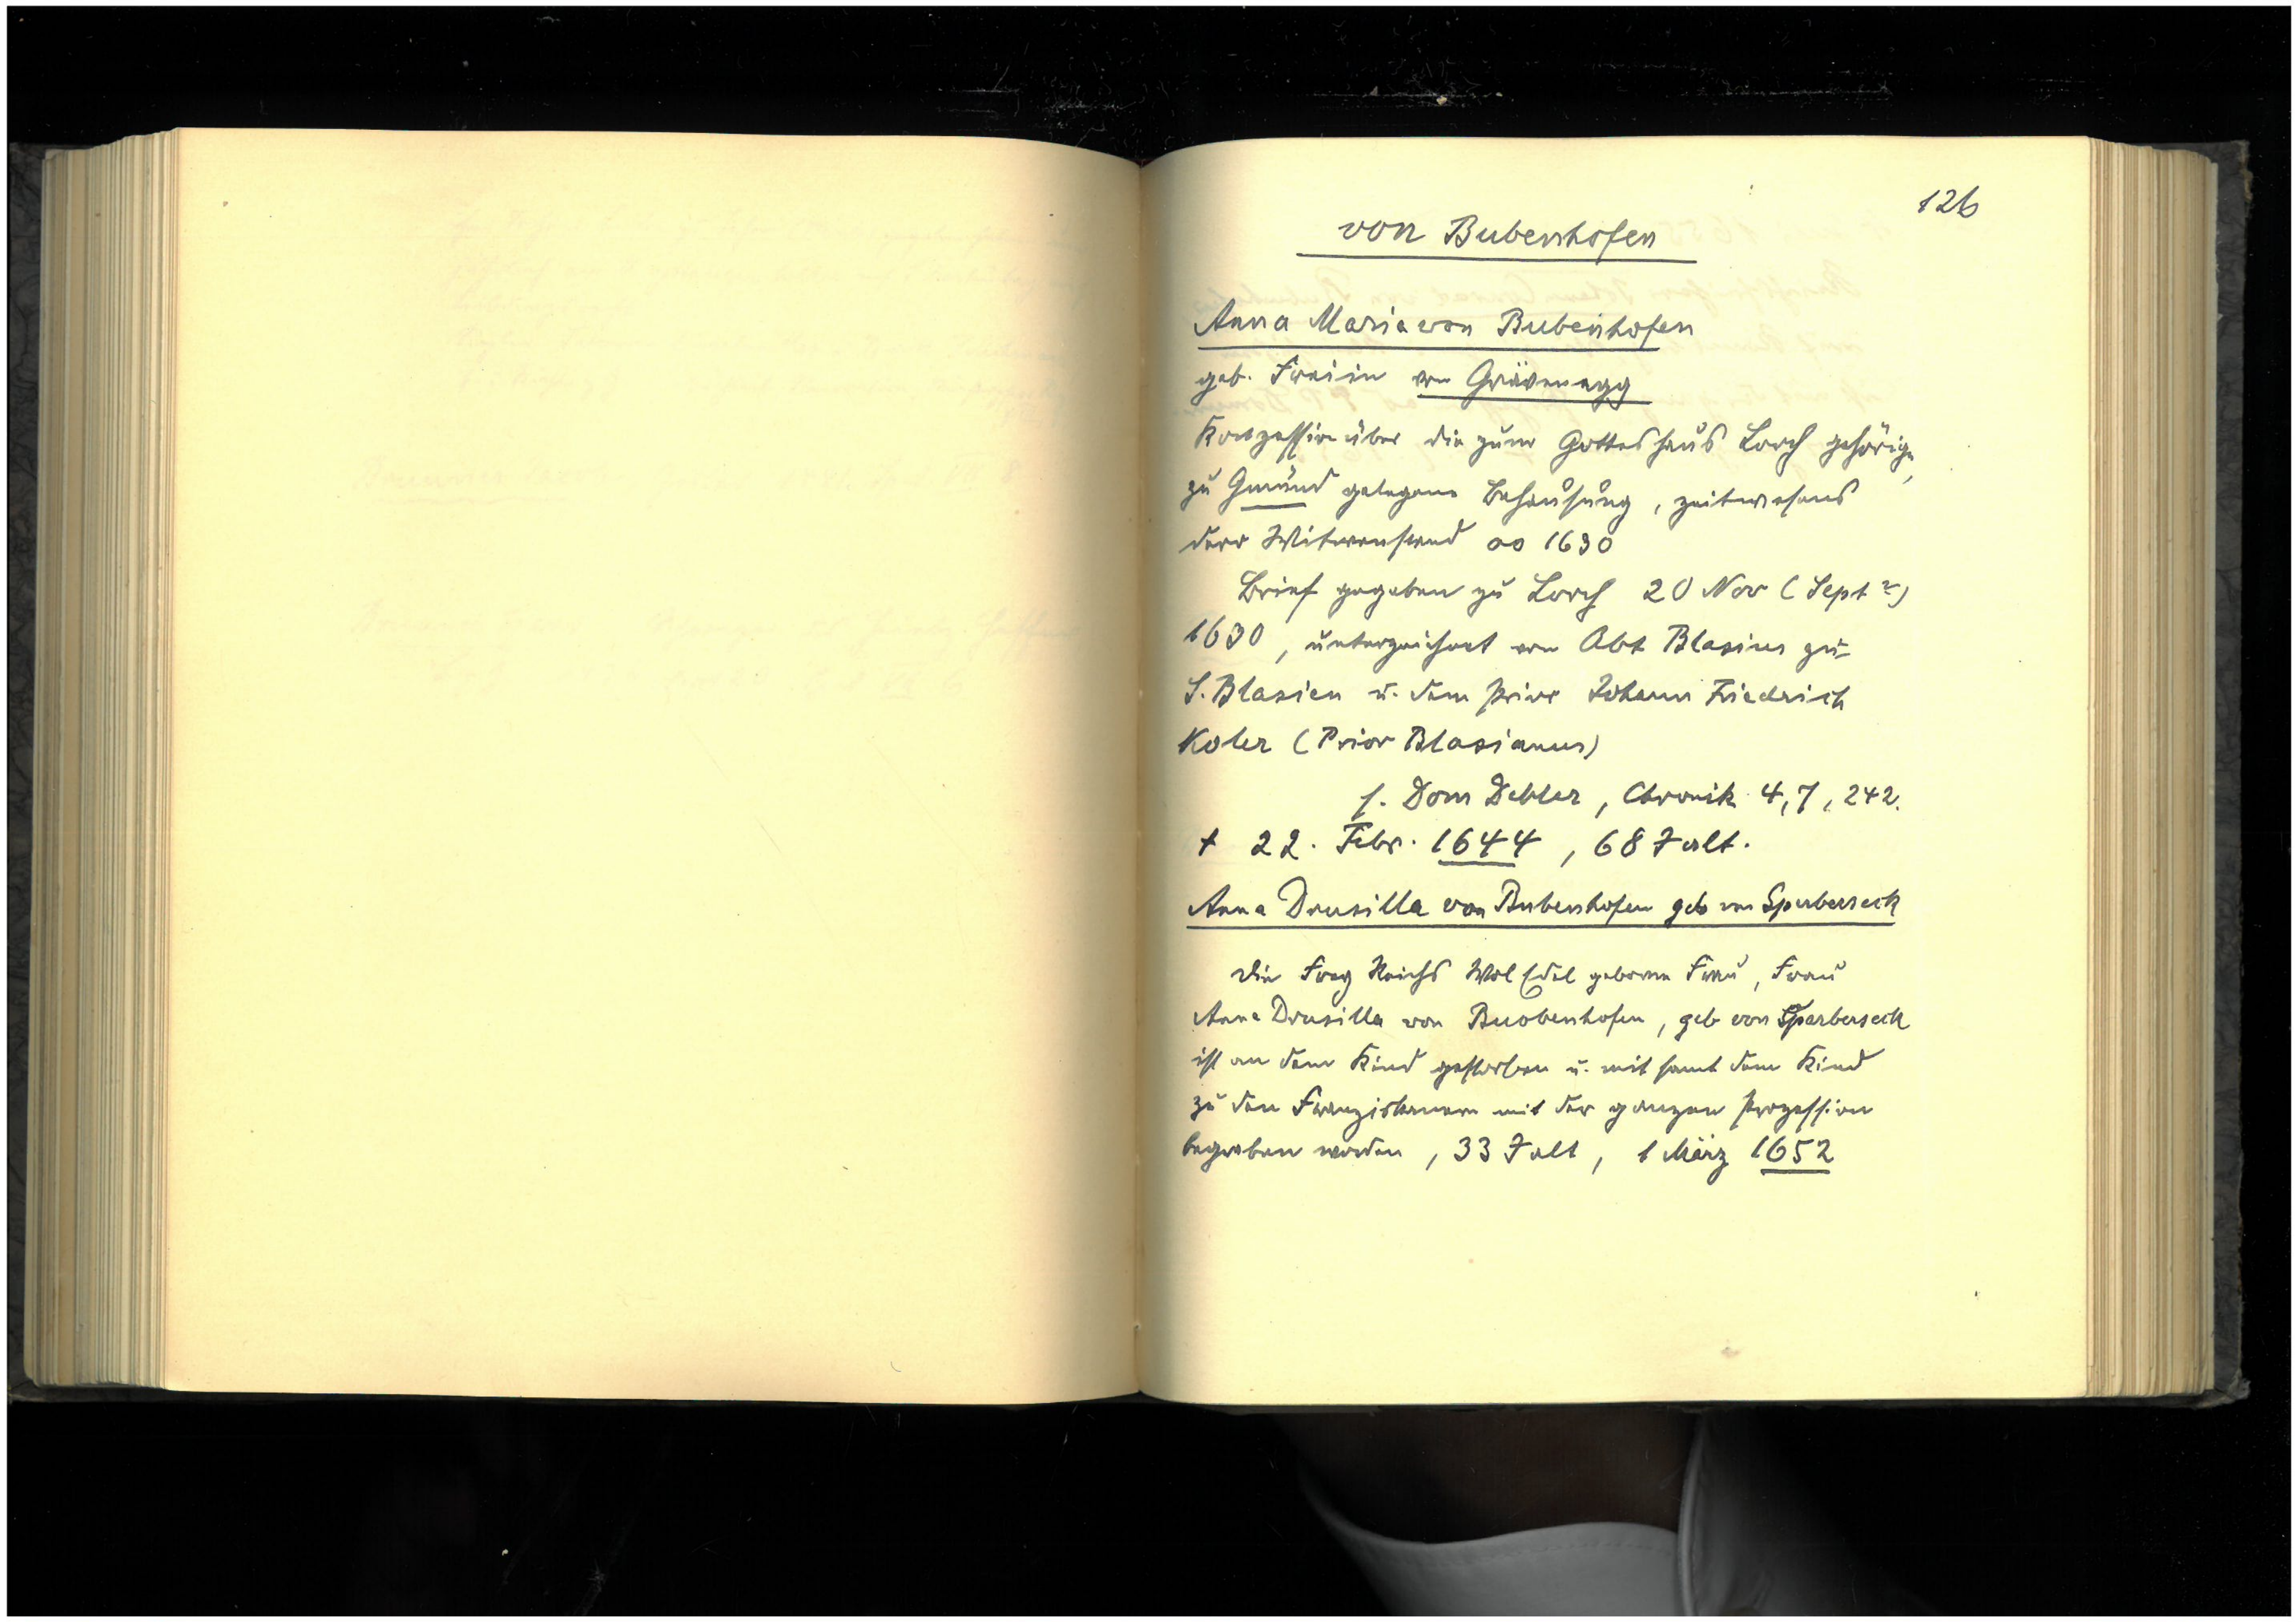 126
von Bubenhofen
Anna Maria von Bubenhofen
geb. Freiin von Grävenegg
Konzession über die zum Gotteshaus Lorch gehörige,
zu Gmünd gelegene Behausung, zeitwesens
derr Witwenstand ao 1630
Brief gegeben zu Lorch 20 Nov (Sept ?)
1630, unterzeichnet von Abt Blasius zu
S. Blasien u. dem Prior Johann Friedrich
Koler (Prior Blasianus)
s. Dom Debler, Chronik 4,7, 242.
† 22. Febr. 1644, 68 J alt.
Anna Drusilla von Bubenhofen geb von Sperberseck
Die Frey Reichs Wol Edel geborne Frau, Frau
Anna Drusilla von Buobenhofen, geb von Sperberseck
ist an dem Kind gestorben u. mit samt dem Kind
zu den Franziskanern mit der ganzen Prozession
begraben worden, 33 J alt, 1 März 1652